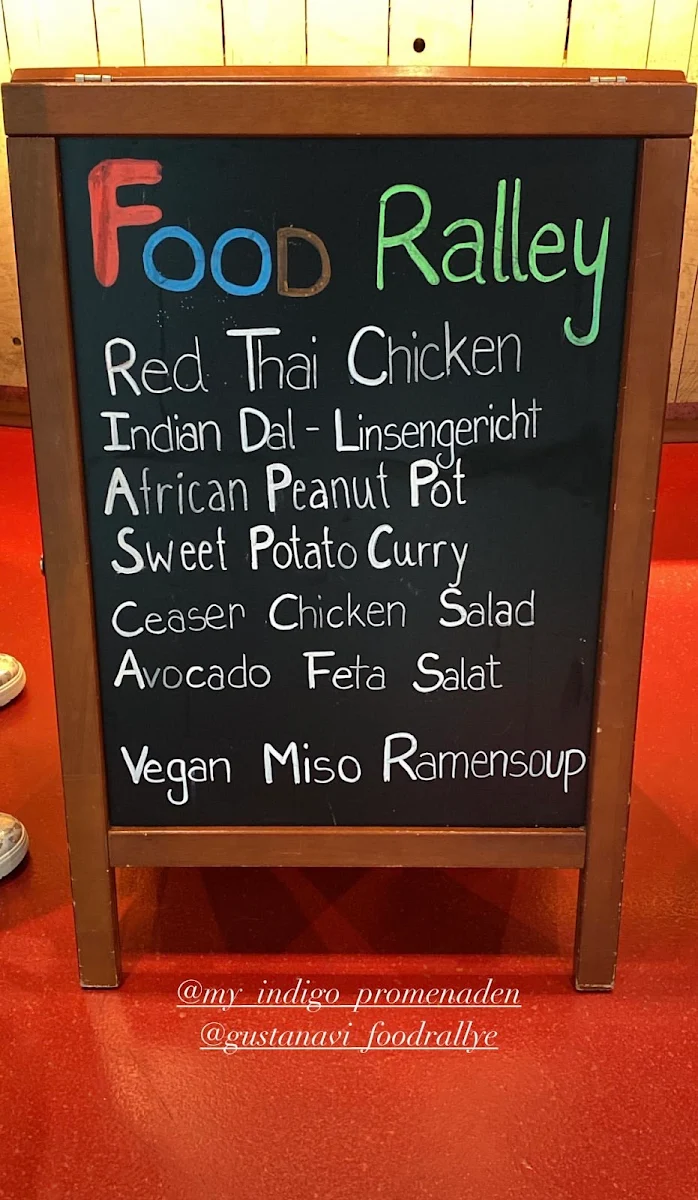 Food Ralley
Red Thai Chicken
Indian Dal - Linsengericht
African Peanut Pot
Sweet Potato Curry
Ceaser Chicken Salad
Avocado Feta Salat
Vegan Miso Ramensoup
@my_indigo_promenaden
@gustanavi_foodrallye